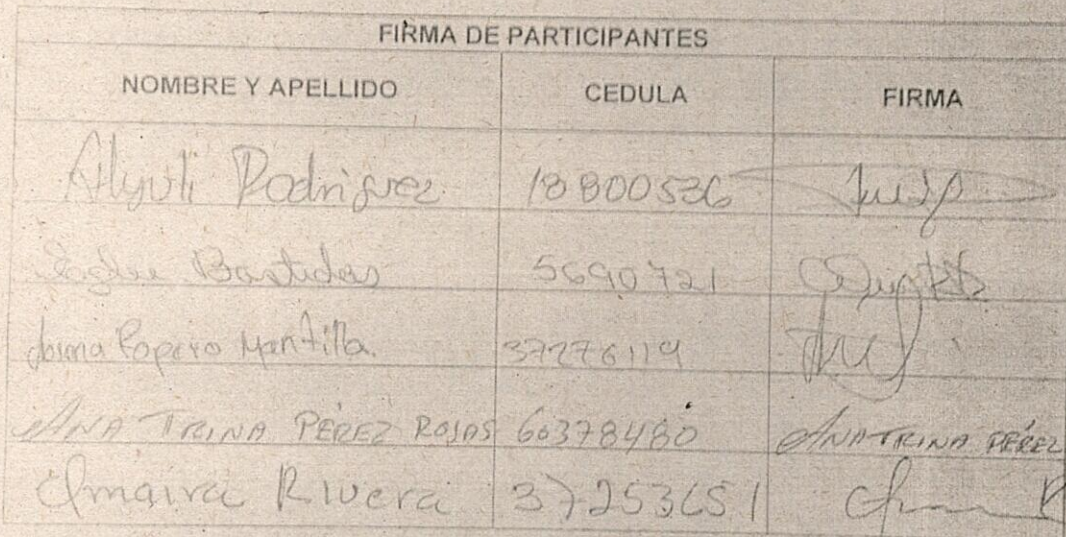 FIRMA DE PARTICIPANTES
NOMBRE Y APELLIDO CEDULA FIRMA
Rodriguez 18800536
Bastidas 5690721
Mantilla. 37276119
ANA TRINA PÉREZ ROJAS 60378480 ANA TRINA PÉREZ
Omaira Rivera 37253651